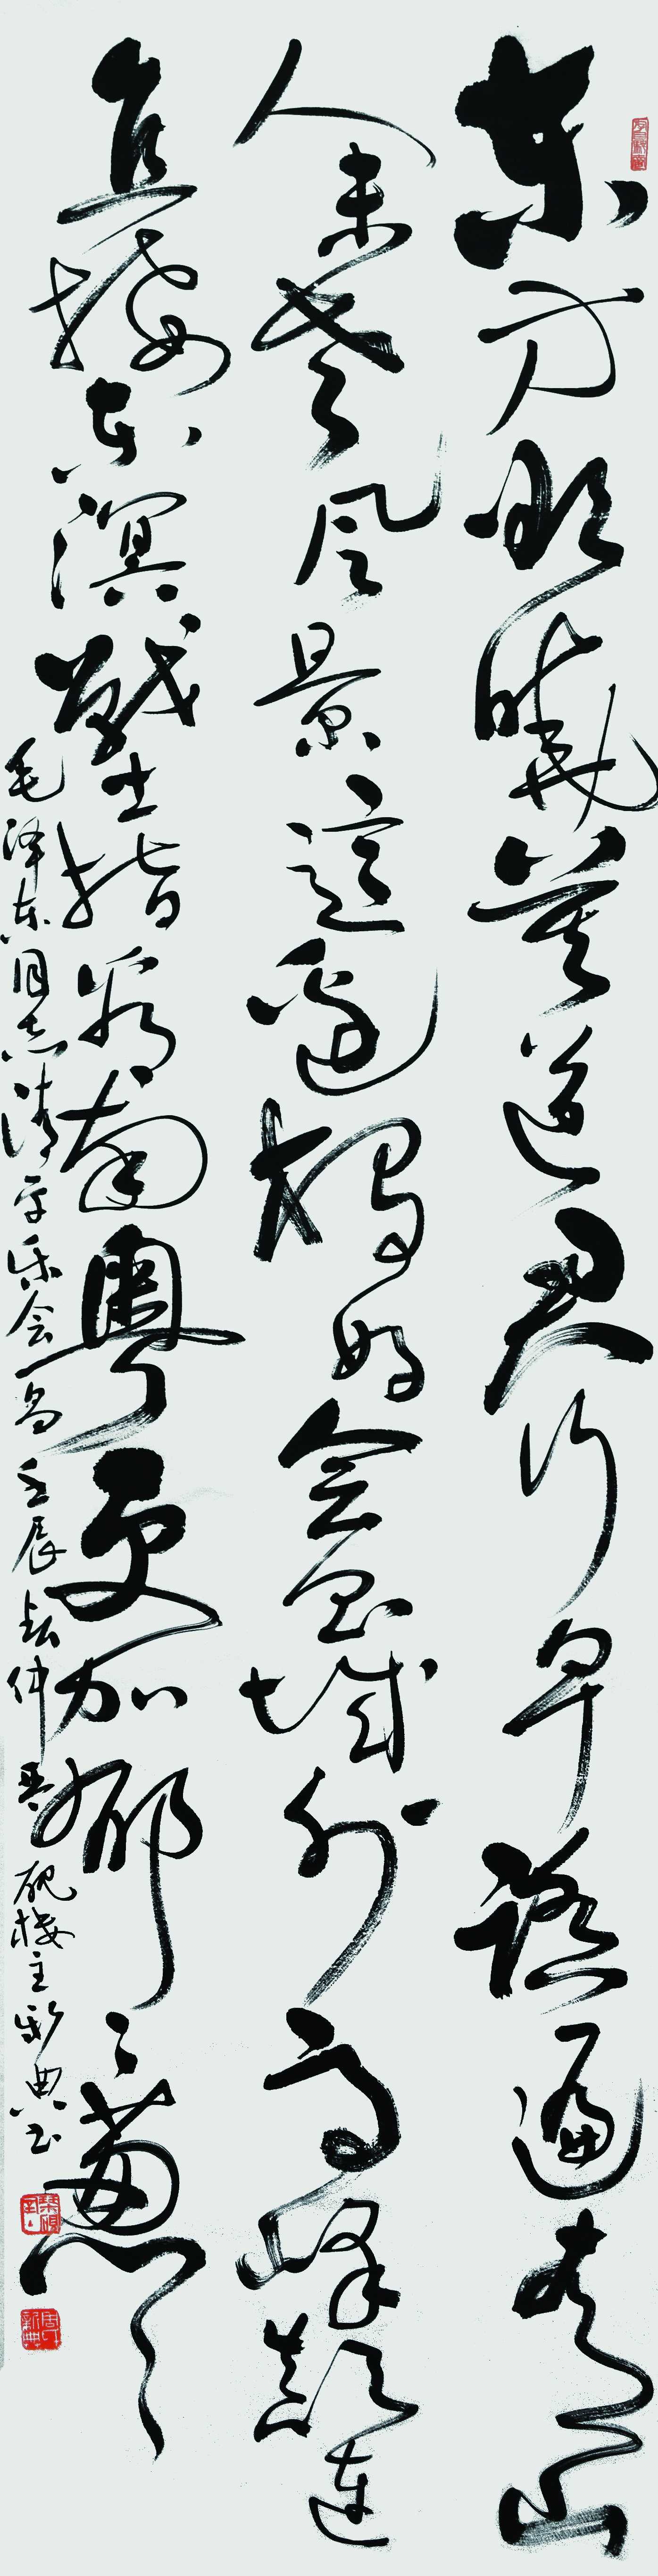 东方欲晓莫道君行早踏遍青山
人未老风景這邊獨好会昌城外高峰颠连
直接东溟戰士指看南粤更加郁々葱々
毛泽东同志清平乐会昌 壬辰秋仲琴砚楼主新典书
周新典